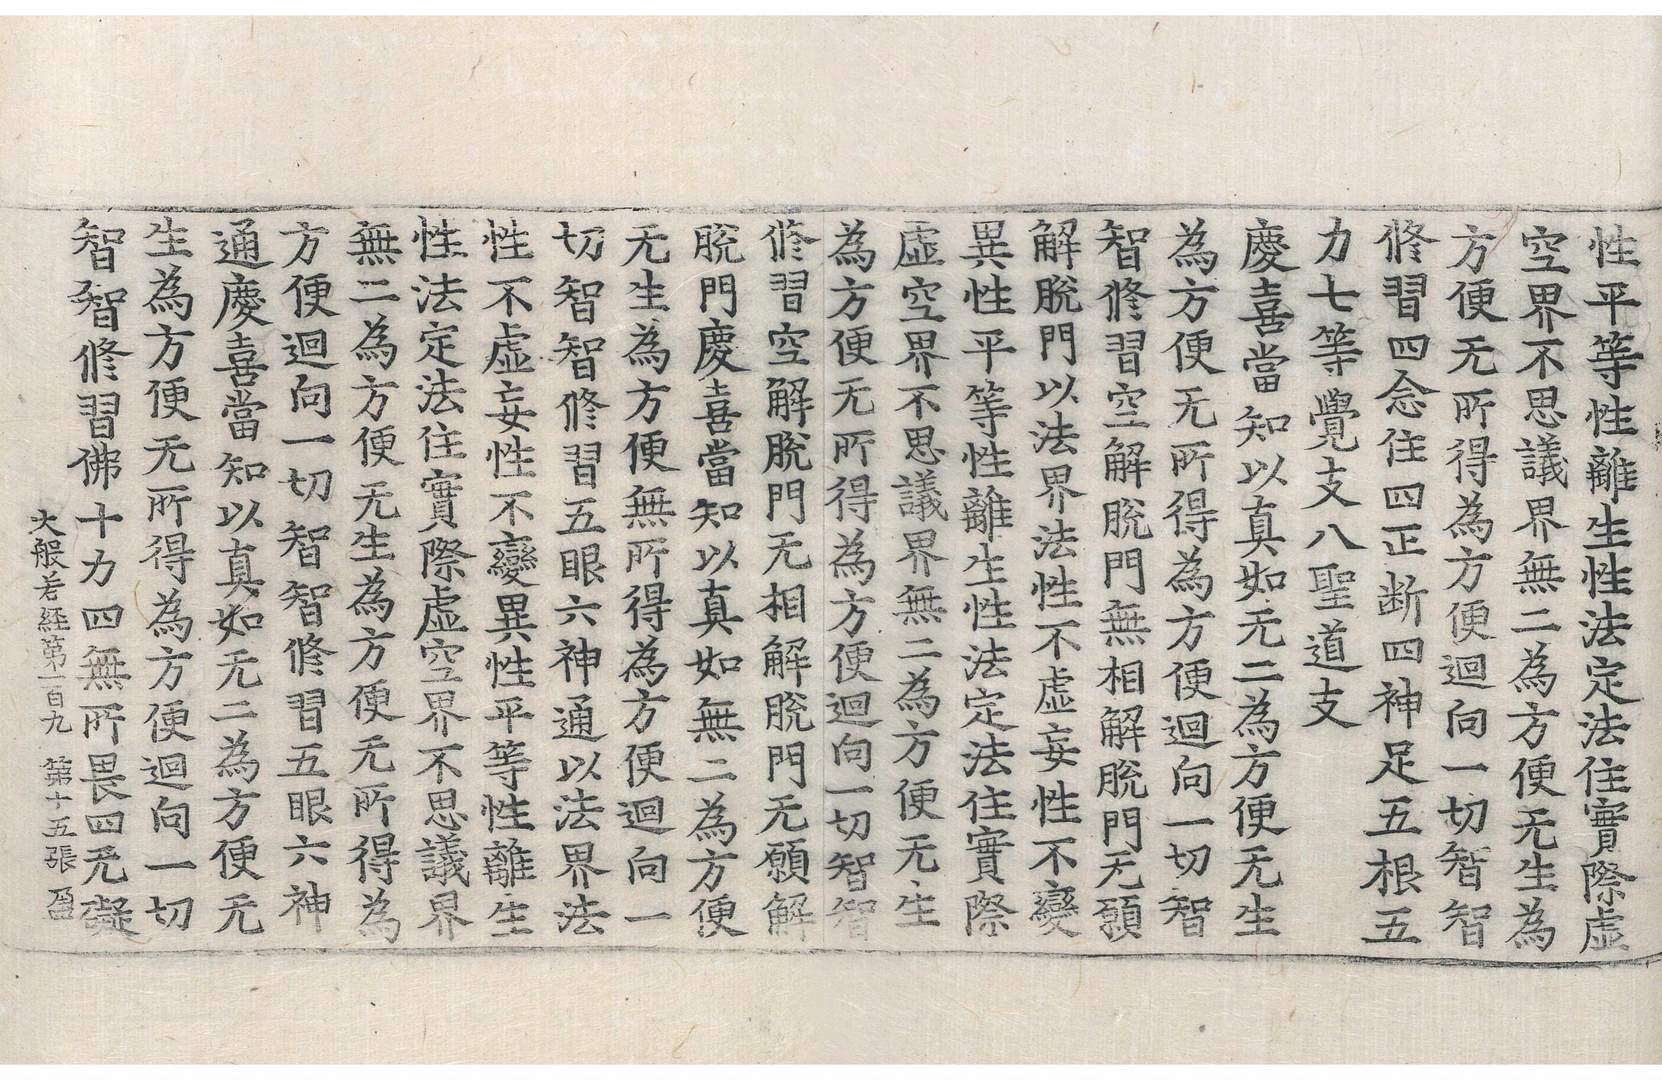 性平等性離生性法定法住實際虛
空界不思議界無二為方便无生為
方便无所得為方便迴向一切智智
修習四念住四正断四神足五根五
力七等覺支八聖道支
慶喜當知以真如无二為方便无生
為方便无所得為方便迴向一切智
智修習空解脫門無相解脫門无願
解脫門以法界法性不虛妄性不變
異性平等性離生性法定法住實際
虛空界不思議界無二為方便无生
為方便无所得為方便迴向一切智智
修習空解脫門无相解脫門无願解
脫門慶喜當知以真如無二為方便
无生為方便無所得為方便迴向一
切智智修習五眼六神通以法界法
性不虛妄性不變異性平等性離生
性法定法住實際虛空界不思議界
無二為方便无生為方便无所得為
方便迴向一切智智修習五眼六神
通慶喜當知以真如无二為方便无
生為方便无所得為方便迴向一切
智智修習佛十力四無所畏四无礙
大般若經第一百九 第十五張 盈